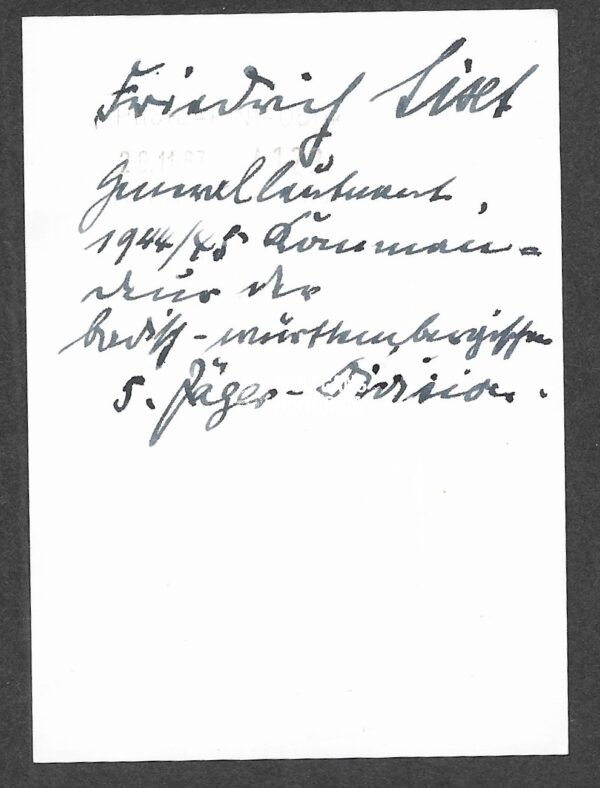 Friedrich Sixt
Generalleutnant,
1944/45 Komman-
deur der
badisch-württembergischen
5. Jäger-Division.